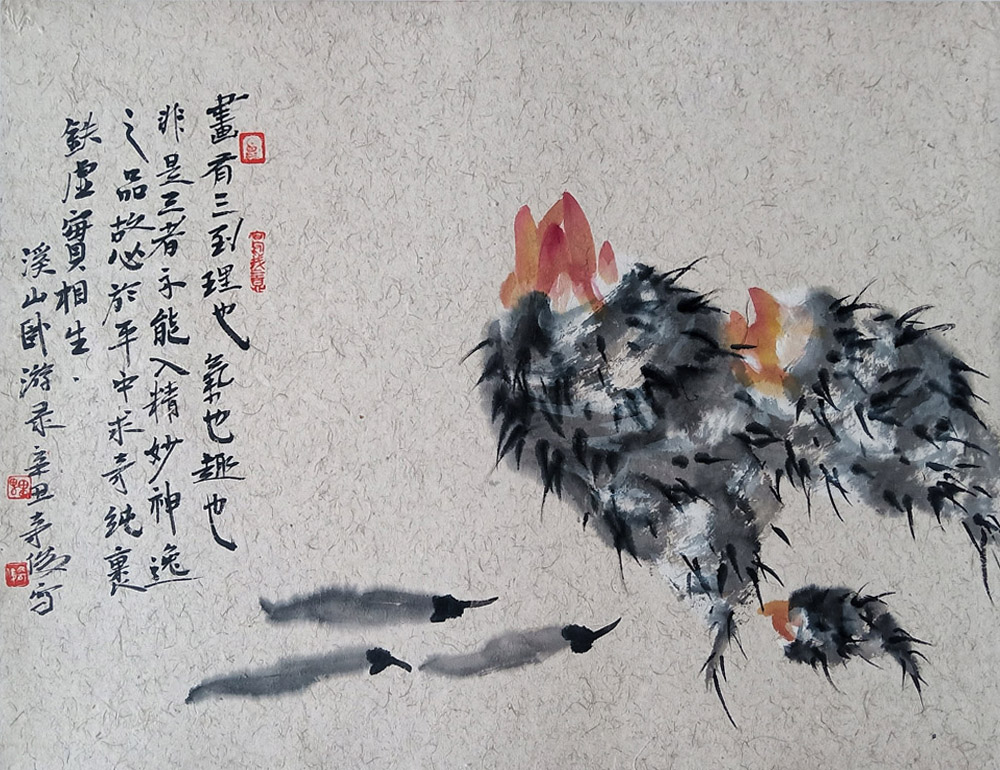 畫有三到理也氣也趣也
非是三者不能入精妙神逸
之品故必於平中求奇純裹
鉄虛實相生
溪山卧游录辛丑写